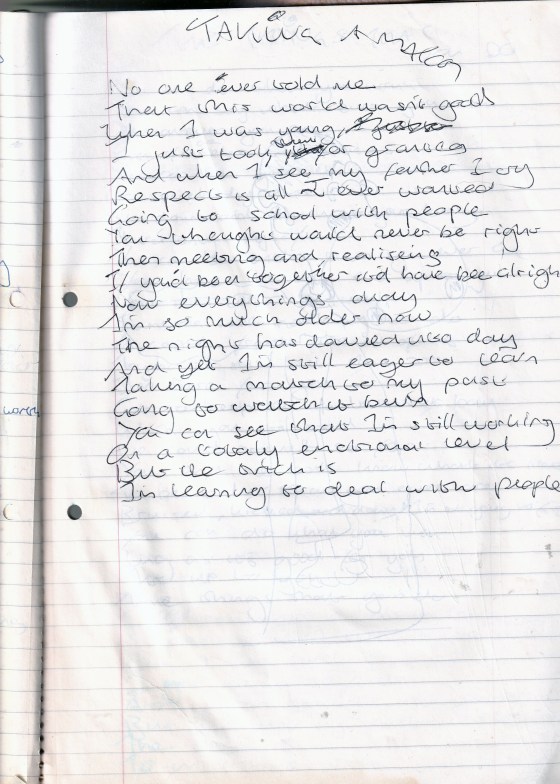 TAKING A MATCH
No one ever told me
That this world wasn't good
When I was young,
I just took for granted
And when I see my father I cry
Respect is all I ever wanted
Going to school with people
You thought would never be right
Then meeting and realising
If you'd been together it'd have bee alrigh
Now everythings okay
I'm so much older now
The night has dawned into day
And yet I'm still eager to learn
Taking a match to my past
Going to watch it burn
You can see that I'm still working
On a totally emotional level
But the bitch is
I'm learning to deal with people